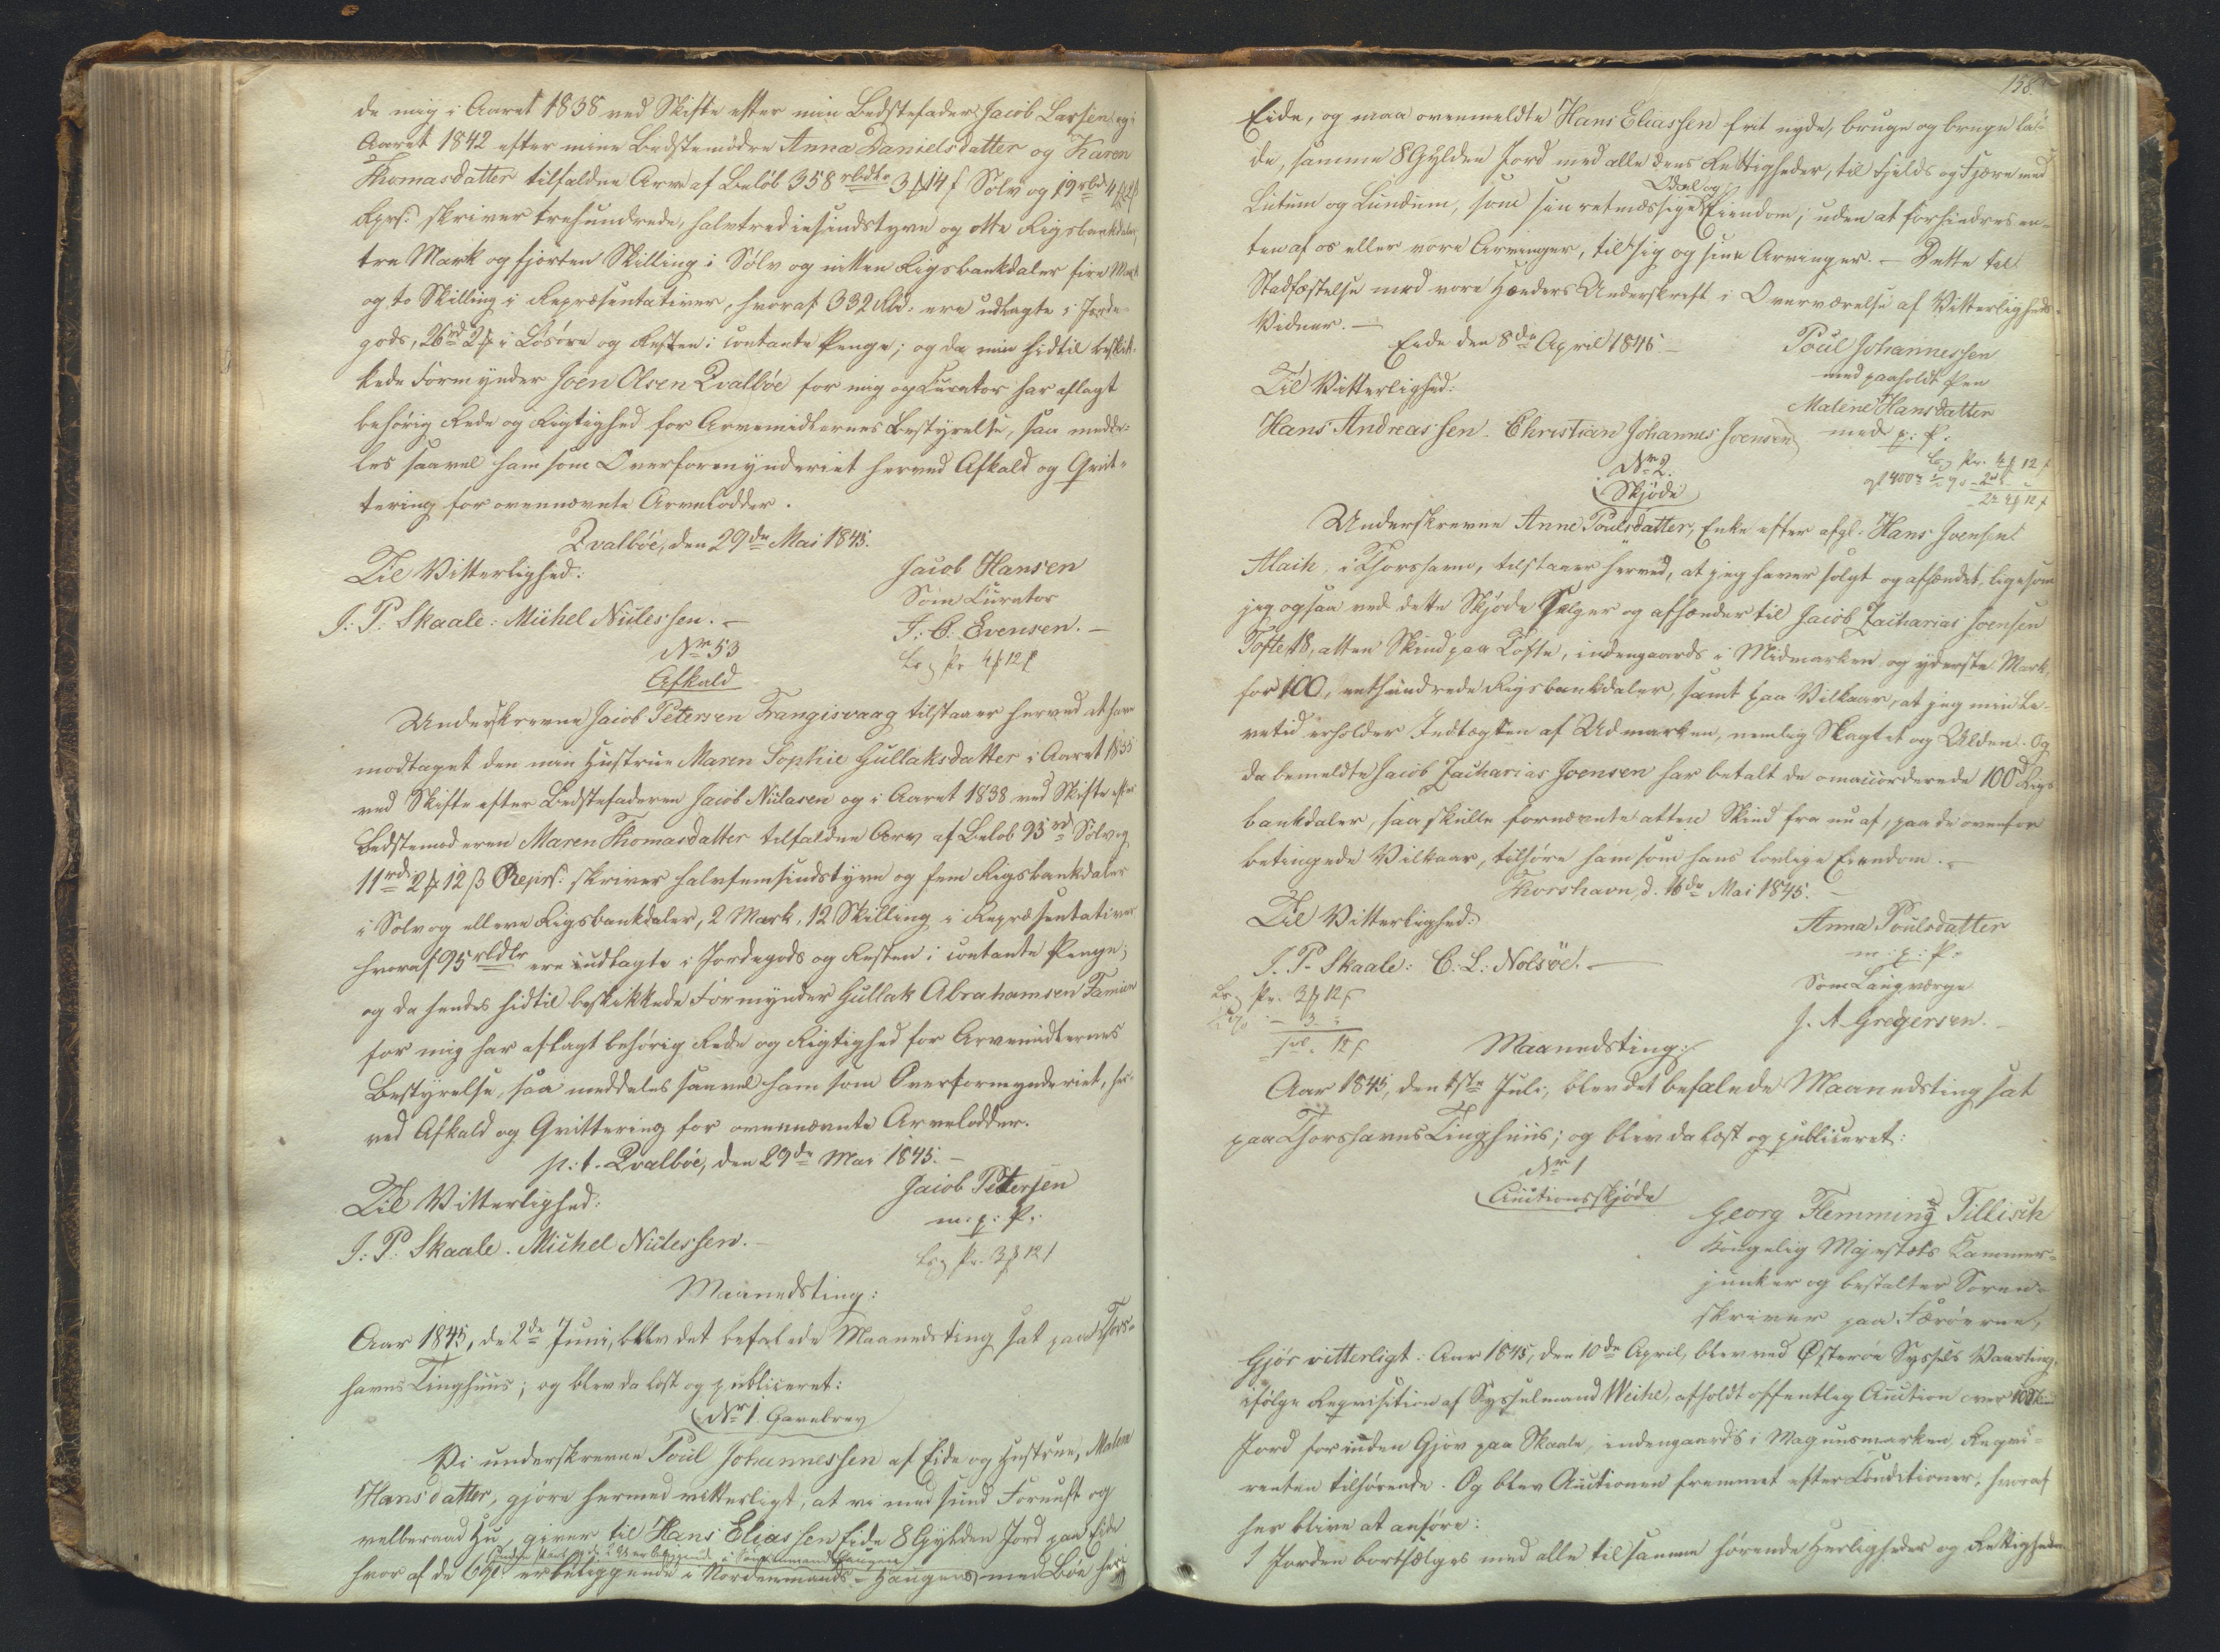 de mig i Aaret 1838 ved Skifte efter min Bedstefader Jacob Larsen og i
Aaret 1842 efter mine Bedstemødre Anna Danielsdatter og Karen
Thomasdatter tilfaldne Arv af Beløb 358 rbdlr 3 # 14 s Sølv og 19 rbd 4 # 2 s
Rprs: skriver trehundrede, halvtrediesindstyve og otte Rigsbankdaler,
tre Mark og fjorten Skilling i Sølv og nitten Rigsbankdaler fire Mark
og to Skilling i Repræsentativer, hvoraf 332 Rbd. ere udlagte i Jorde-
gods, 26 rd 2 # i Løsøre og Resten i contante Penge; og da min hidtil beskik-
kede Formynder Joen Olsen Qvalbøe for mig og Curator har aflagt
behørig Rede og Rigtighed for Arvemidlernes Bestyrelse, saa medde-
les saavel ham som Overformynderiet herved Afkald og Qvit-
tering for ovennævnte Arvelodder.
Qvalbøe, den 29de Mai 1845.
Til Vitterlighed:
Jacob Hansen
Som Curator
J: P: Skaale: Michel Niclessen. -
J: C: Evensen. -
Nr 53
Afkald
Underskrevne Jacob Petersen Frangisvaag tilstaaer herved at have
modtaget den min Hustrue Maren Sophie Gullaksdatter i Aaret 1835
ved Skifte efter Bedstefaderen Jacob Niclasen og i Aaret 1838 ved Skifte efter
Bedstemoderen Maren Thomasdatter tilfaldne Arv af Beløb 95 rd Sølv og
11 rd 2 # 12 ß Reprs: skriver halvfemsindstyve og fem Rigsbankdaler
i Sølv og elleve Rigsbankdaler, 2 Mark, 12 Skilling i Repræsentativer
hvoraf 95 rbdlr ere udlagte i Jordegods og Resten i contante Penge;
og da hendes hidtil beskikkede Formynder Gullak Abrahamsen Famien
for mig har aflagt behørig Rede og Rigtighed for Arvemidlernes
Bestyrelse, saa meddeles saavel ham som Overformynderiet, her-
ved Afkald og Qvittering for ovennævnte Arvelodder.
p: t. Qvalbøe, den 29de Mai 1845. -
Til Vitterlighed:
Jacob Petersen
m: p: P:
J: P: Skaale. Michel Niclessen. -
Maanedsting:
Aar 1845, de 2de Juni, blev det befalede Maanedsting sat paa Thors-
havns Tinghuus; og blev da læst og publiceret:
Nr 1. Gavebrev
Vi underskrevne Poul Johannessen af Eide og Hustrue, Malene
Hansdatter, gjøre hermed vitterligt, at vi med sund Fornuft og
velberaad Hu, giver til Hans Eliassen Eide 8 Gylden Jord paa Eide
hvor af de 6 Gl. er beliggende i Nordenmands-Haugen, med Bøe her
158.
Eide, og maa ovenmeldte Hans Eliassen frit nyde, bruge og bruge la-
de, samme 8 Gylden Jord med alle dens Rettigheder, til Fjelds og Fjære med
Lutum og Lundum, som sin retmæssige Odel og Eiendom; uden at forhindres en-
ten af os eller vore Arvinger, til sig og sine Arvinger. - Dette til
Stadfæstelse med vore Hænders Underskrift i Overværelse af Vitterligheds-
Vidner. -
Eide den 8de April 1845 -
Poul Johannessen
med paaholdt Pen
Til Vitterlighed:
Malene Hansdatter
Hans Andreassen. Christian Johannes Joensen
med p: P.
Nr 2.
Skjøde
Underskrevne Anne Poulsdatter, Enke efter afgl. Hans Joensen
i Thorshavn, tilstaaer herved, at jeg haver solgt og afhændet, ligesom
jeg ogsaa ved dette Skjøde sælger og afhænder til Jacob Zacharias Joensen
Tofte, 18, atten Skind paa Tofte, indengaards i Midmarken og yderste Mark,
for 100, eethundrede Rigsbankdaler, samt paa Vilkaar, at jeg min Le-
vetid erholder Indtægten af Udmarken, nemlig Slagtet og Ulden. Og
da bemeldte Jacob Zacharias Joensen har betalt de omaccorderede 100 Rigs-
bankdaler, saa skulle fornævnte atten Skind fra nu af, paa de ovenfor
betingede Vilkaar, tilhøre ham som hans lovlige Eiendom. -
Thorshavn, d. 16de Mai 1845. -
Til Vitterlighed:
Anna Poulsdatter
m: p: P.
J. P. Skaale: C: L: Nolsøe. -
Som Laugværge
J. A. Gregersen. -
Maanedsting:
Aar 1845, den 1ste Juli, blev det befalede Maanedsting sat
paa Thorshavns Tinghuus; og blev da læst og publiceret:
Nr 1
Auctionsskjøde
Georg Flemming Tillisch
Kongelig Majestæts Kammer-
junker og bestalter Soren-
skriver paa Færøerne,
Gjør vitterligt: Aar 1845, den 10de April, blev ved Østerøe Syssels Vaarting,
ifølge Reqvisition af Sysselmand Weihe, afholdt offentlig Auction over 10 Skind
Jord for inden Gjov paa Skaale, indengaards i Magnusmarken, Reqvi-
renten tilhørende. Og blev Auctionen fremmet efter Conditioner, hvoraf
her blive at anføre:
1 Jorden bortsælges med alle til samme hørende Herligheder og Rettigheder